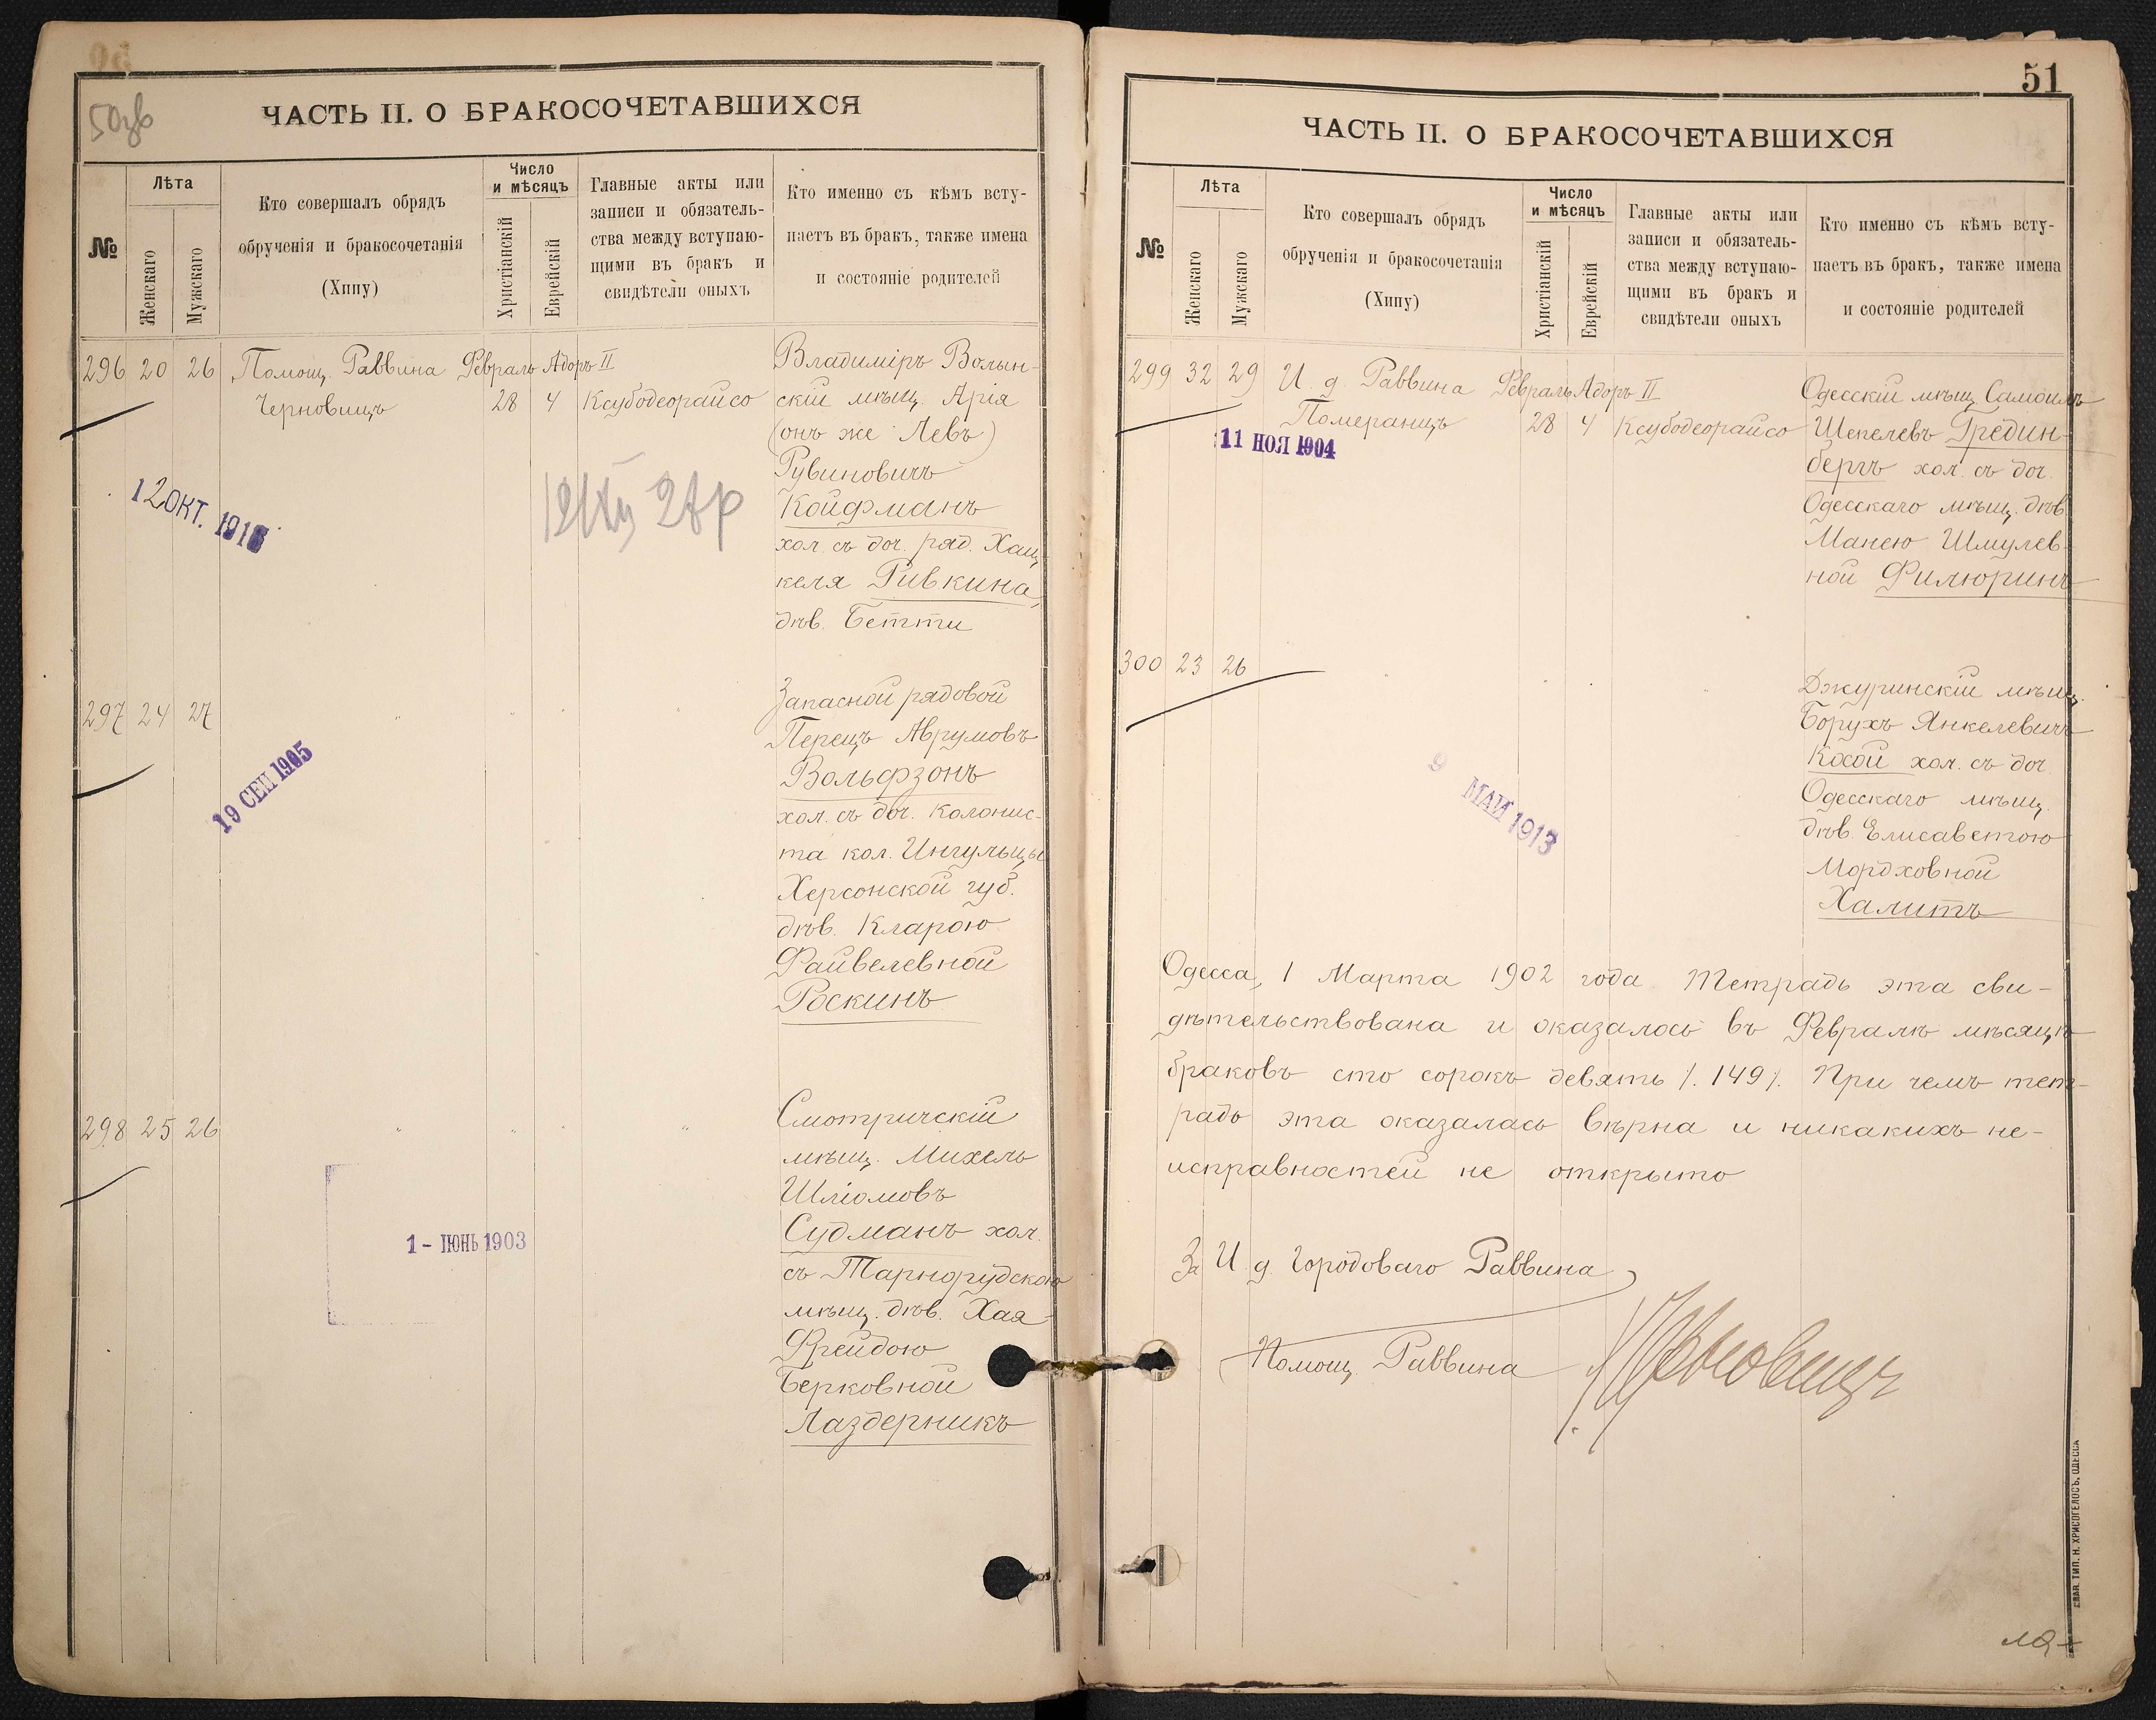 50зв
ЧАСТЬ II. О БРАКОСОЧЕТАВШИХСЯ
№
Лѣта
Женскаго
Мужскаго
Кто совершалъ обрядъ
обрученія и бракосочетанія
(Хипу)
Число
и мѣсяцъ
Христіанскій
Еврейскій
Главные акты или
записи и обязатель-
ства между вступаю-
щими въ бракъ и
свидѣтели оныхъ
Кто именно съ кѣмъ всту-
паетъ въ бракъ, также имена
и состояніе родителей
296 20 26 Помощ. Раввина Февраль Адоръ II
Черновицъ 28 4 Ксубодеорайсо
Владиміръ Волын-
скій мѣщ. Арія
(онъ же Левъ)
Рувиновичъ
Койфманъ
хол. съ доч. ряд. Хац-
келя Ривкина,
дѣв. Бетти
12 ОКТ. 191
297 24 27 " " "
Запасной рядовой
Перецъ Аврумовъ
Вольфзонъ
хол. съ доч. колонис-
та кол. Ингульцы
Херсонской губ.
дѣв. Кларою
Файвелевной
Роскинъ
19 СЕН 1905
298 25 26 " " "
Смотричскій
мѣщ. Михель
Шліомовъ
Судманъ хол.
съ Тарнорудскою
мѣщ. дѣв. Хая-
Фрейдою
Берковной
Лаздерникъ
1 - ІЮНЬ 1903
51
ЧАСТЬ II. О БРАКОСОЧЕТАВШИХСЯ
№
Лѣта
Женскаго
Мужскаго
Кто совершалъ обрядъ
обрученія и бракосочетанія
(Хипу)
Число
и мѣсяцъ
Христіанскій
Еврейскій
Главные акты или
записи и обязатель-
ства между вступаю-
щими въ бракъ и
свидѣтели оныхъ
Кто именно съ кѣмъ всту-
паетъ въ бракъ, также имена
и состояніе родителей
299 32 29 И. д. Раввина Февраль Адоръ II
Померанцъ 28 4 Ксубодеорайсо
Одесскій мѣщ. Самоилъ
Шепелевъ Гредин-
бергъ хол. съ доч.
Одесскаго мѣщ. дѣв.
Манею Шмулев-
ной Филюринъ
11 НОЯ 1904
300 23 26 " " "
Джуринскій мѣщ.
Борухъ Янкелевичъ
Косой хол. съ доч.
Одесскаго мѣщ.
дѣв. Елисаветою
Мордховной
Халитъ
9 МАИ 1913
Одесса, 1 Марта 1902 года. Тетрадь эта сви-
дѣтельствована и оказалось въ Февралѣ мѣсяцѣ
браковъ сто сорокъ девять /. 149 /. При чемъ тет-
радь эта оказалась вѣрна и никакихъ не-
исправностей не открыто
За И. д. Городоваго Раввина
Помощ. Раввина
СЛАВ. ТИП. Н. ХРИСОГЕЛОСЪ, ОДЕССА